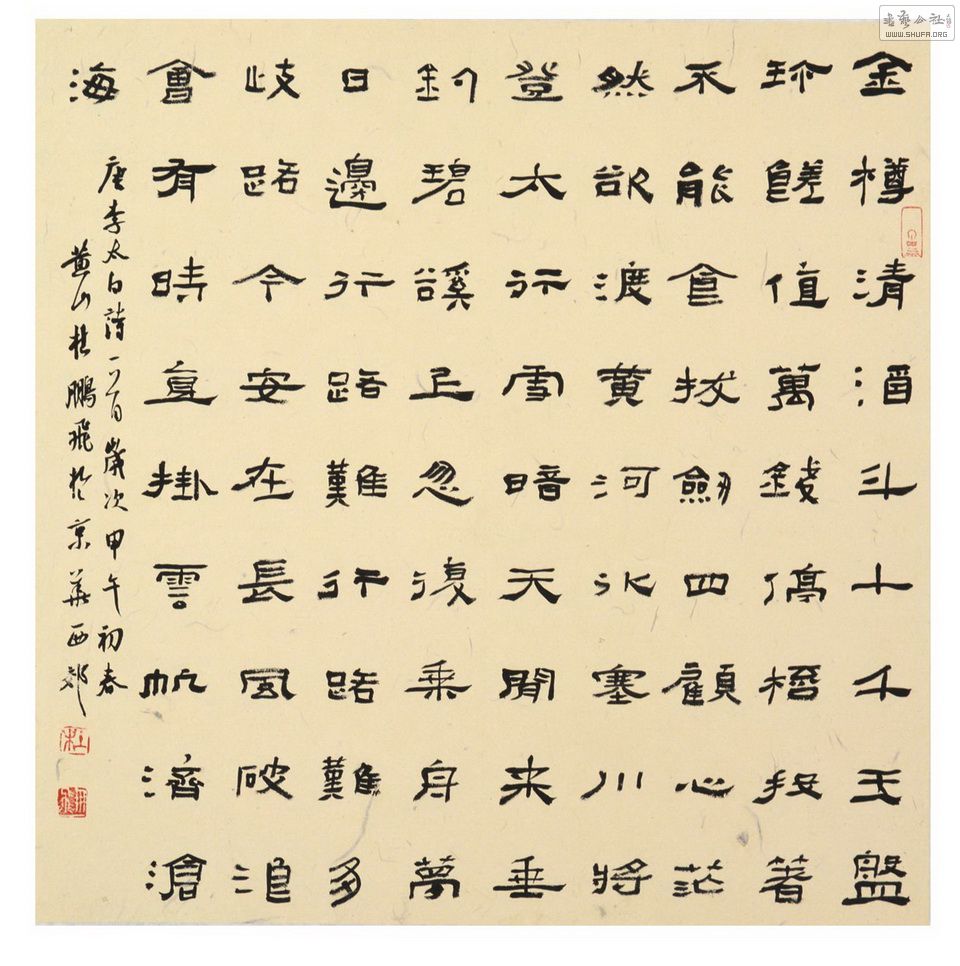 金樽清酒斗十千玉盤
珎饈值萬錢停桮投著
不能食拔劍四顧心茫
然欲渡黃河冰塞川將
登太行雪暗天閒來垂
釣碧溪上忽復乘舟夢
日邊行路難行路難多
歧路今安在長風破浪
會有時直掛雲帆濟滄
海
唐李太白詩一首歲次甲午初春
黃山杜鵬飛於京華西郊
書藝公社
WWW.SHUFA.ORG